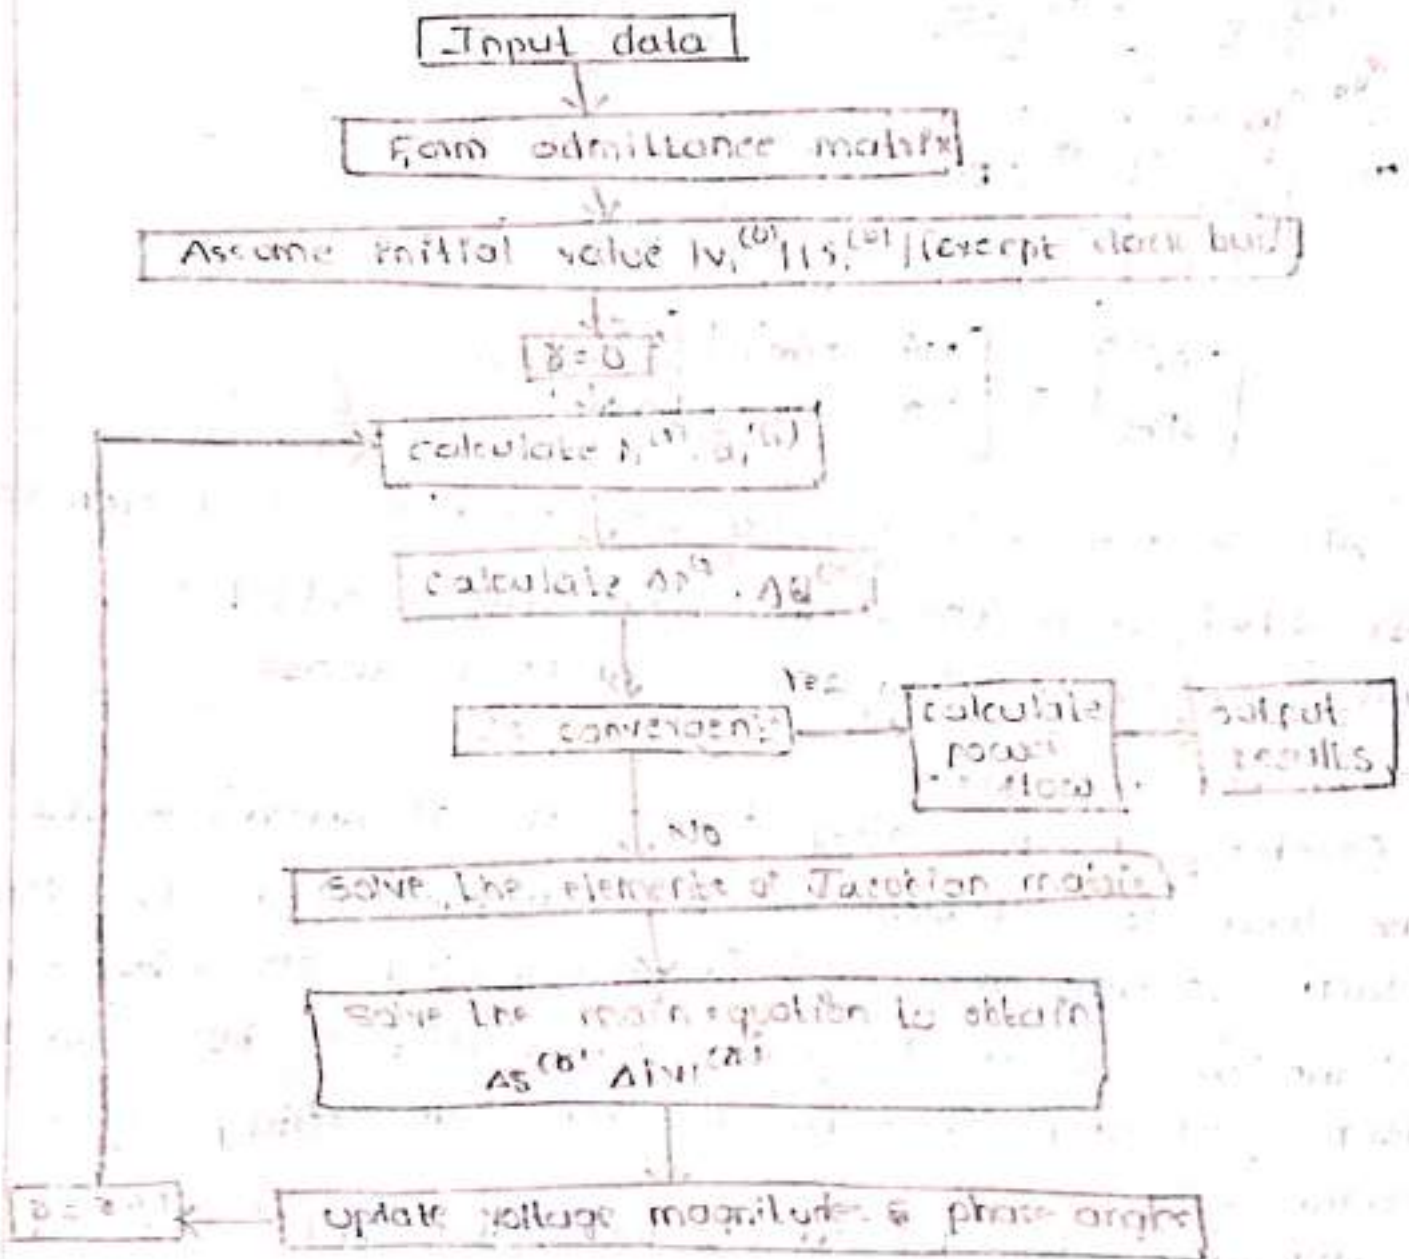 Input data
Form admittance matrix
Assume initial value |V_i^(0)| |δ_i^(0)| (except slack bus)
γ = 0
calculate P_i^(γ), Q_i^(γ)
calculate ΔP^(γ), ΔQ^(γ)
convergent
Yes
calculate
power
flow
output
results
No
Solve the elements of Jacobian matrix
Solve the main equation to obtain
Δδ^(γ) Δ|V|^(γ)
update voltage magnitudes & phase angles
γ = γ + 1